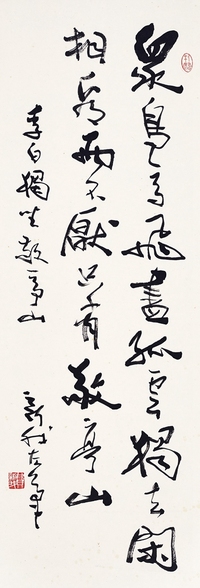 眾鳥高飛盡孤雲獨去閑
相看兩不厭只有敬亭山
李白獨坐敬亭山
新我左筆